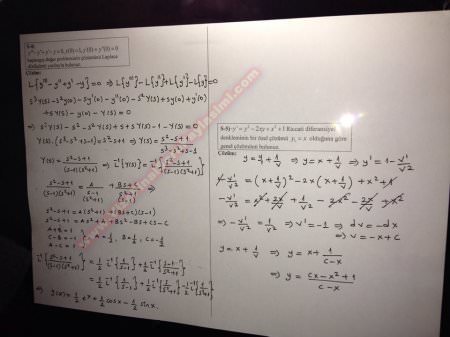 S-4)
y''' - y'' + y' - y = 0, y(0) = 1, y'(0) = y''(0) = 0
başlangıç değer probleminin çözümünü Laplace
dönüşümü yardımıyla bulunuz.
Çözüm:
L{y''' - y'' + y' - y} = 0 ⇒ L{y'''} - L{y''} + L{y'} - L{y} = 0
s³Y(s) - s²y(0) - sy'(0) - y''(0) - s²Y(s) + sy(0) + y'(0)
+ sY(s) - y(0) - Y(s) = 0
⇒ s³Y(s) - s² - s²Y(s) + s + sY(s) - 1 - Y(s) = 0
Y(s)(s³ - s² + s - 1) = s² - s + 1 ⇒ Y(s) = (s² - s + 1)/(s³ - s² + s - 1)
Y(s) = (s² - s + 1)/((s-1)(s²+1)) ⇒ L⁻¹{Y(s)} = L⁻¹{(s² - s + 1)/((s-1)(s²+1))}
(s² - s + 1)/((s-1)(s²+1)) = A/(s-1) + (Bs + C)/(s²+1) ⇒
s² - s + 1 = A(s²+1) + (Bs + C)(s-1)
s² - s + 1 = As² + A + Bs² - Bs + Cs - C
A + B = 1
C - B = -1
A - C = 1
A = 1/2, B = 1/2, C = -1/2
L⁻¹{(s² - s + 1)/((s-1)(s²+1))} = 1/2 L⁻¹{1/(s-1)} + 1/2 L⁻¹{(s-1)/(s²+1)}
= 1/2 L⁻¹{1/(s-1)} + 1/2 L⁻¹{s/(s²+1)} - 1/2 L⁻¹{1/(s²+1)}
⇒ y(x) = 1/2 eˣ + 1/2 cos x - 1/2 sin x.
S-5) y' = y² - 2xy + x² + 1 Riccati diferansiyel
denkleminin bir özel çözümü y₁ = x olduğuna göre
genel çözümünü bulunuz.
Çözüm:
y = y₁ + 1/v ⇒ y = x + 1/v ⇒ y' = 1 - v'/v²
1 - v'/v² = (x + 1/v)² - 2x(x + 1/v) + x² + 1
- v'/v² = x² + 2x/v + 1/v² - 2x² - 2x/v + x²
⇒ - v'/v² = 1/v² ⇒ v' = -1 ⇒ dv = -dx
⇒ v = -x + c
y = x + 1/v ⇒ y = x + 1/(c-x)
⇒ y = (cx - x² + 1)/(c - x)